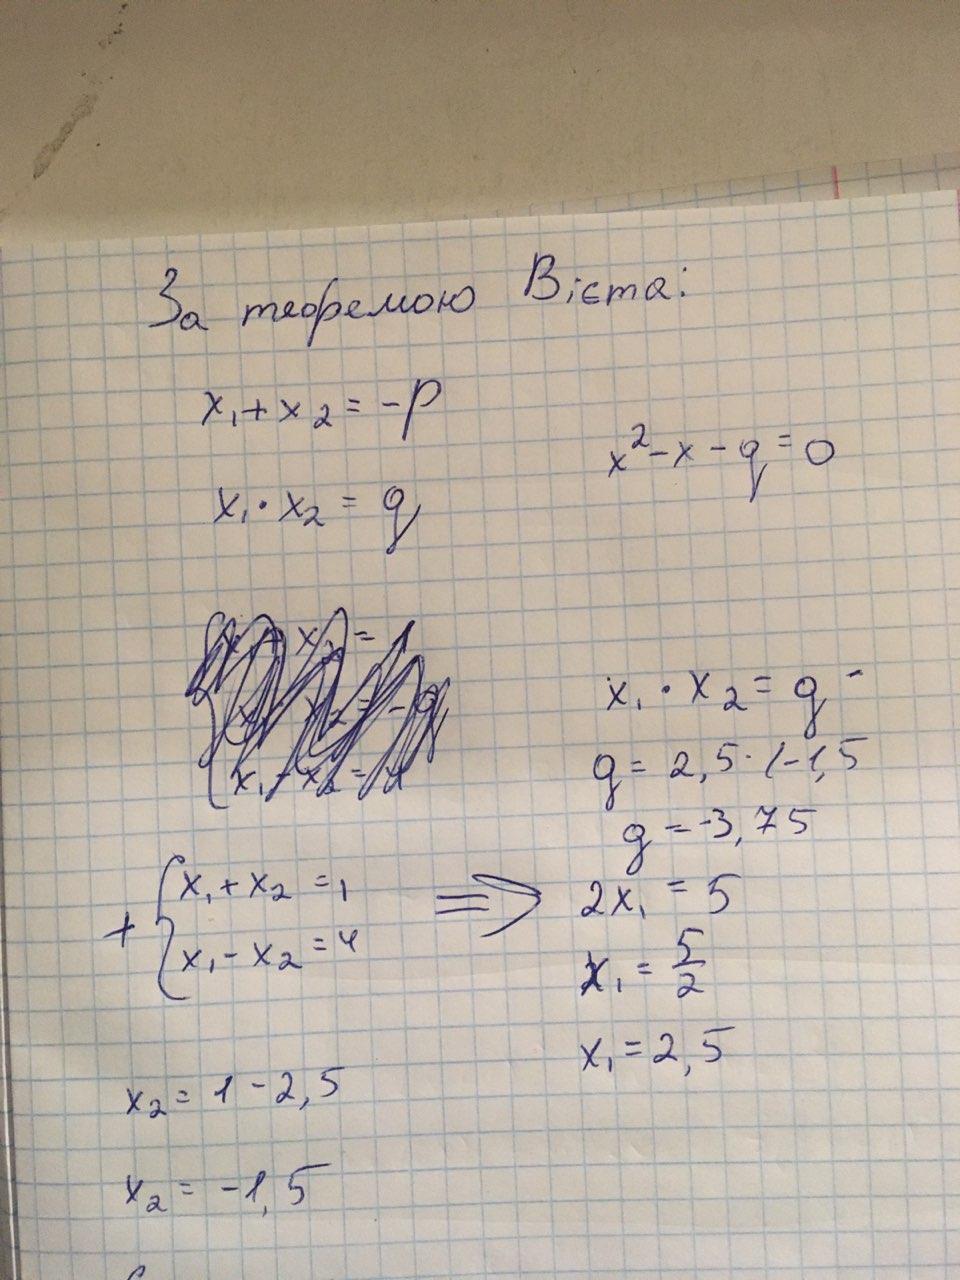 За теоремою Вієта:
x₁ + x₂ = -p
x² - x - q = 0
x₁ · x₂ = q
x₁ · x₂ = q -
q = 2,5 · (-1,5
q = -3,75
+ { x₁ + x₂ = 1
x₁ - x₂ = 4
=> 2x₁ = 5
x₁ = 5/2
x₁ = 2,5
x₂ = 1 - 2,5
x₂ = -1,5